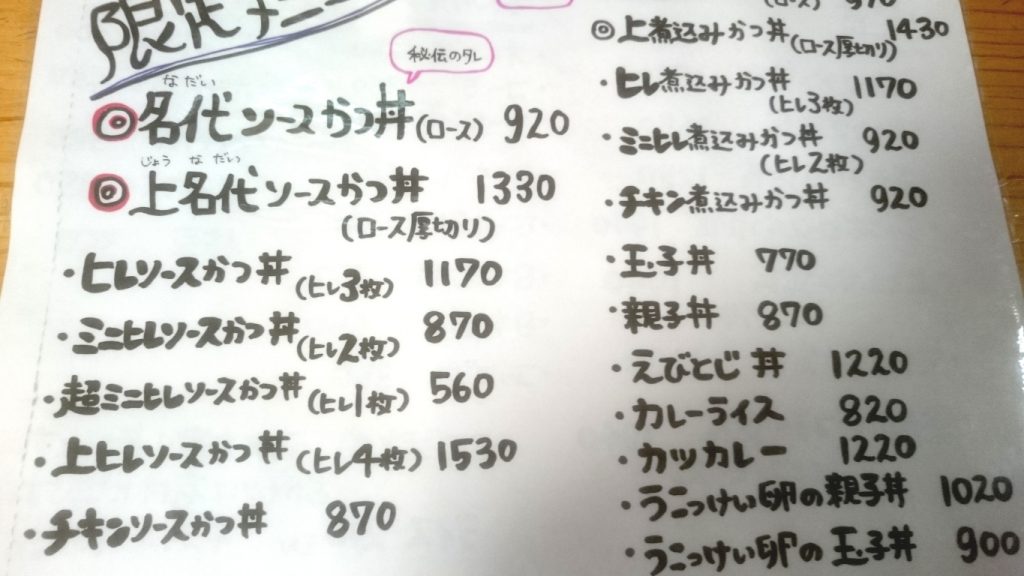 限定メニュー
秘伝のタレ
なだい
◎名代ソースかつ丼(ロース) 920
じょうなだい
◎上名代ソースかつ丼 1330
(ロース厚切り)
・ヒレソースかつ丼(ヒレ3枚) 1170
・ミニヒレソースかつ丼(ヒレ2枚) 870
・超ミニヒレソースかつ丼(ヒレ1枚) 560
・上ヒレソースかつ丼(ヒレ4枚) 1530
・チキンソースかつ丼 870
◎上煮込みかつ丼(ロース厚切り) 1430
・ヒレ煮込みかつ丼 1170
(ヒレ3枚)
・ミニヒレ煮込みかつ丼 920
(ヒレ2枚)
・チキン煮込みかつ丼 920
・玉子丼 770
・親子丼 870
・えびとじ丼 1220
・カレーライス 820
・カツカレー 1220
・うこっけい卵の親子丼 1020
・うこっけい卵の玉子丼 900